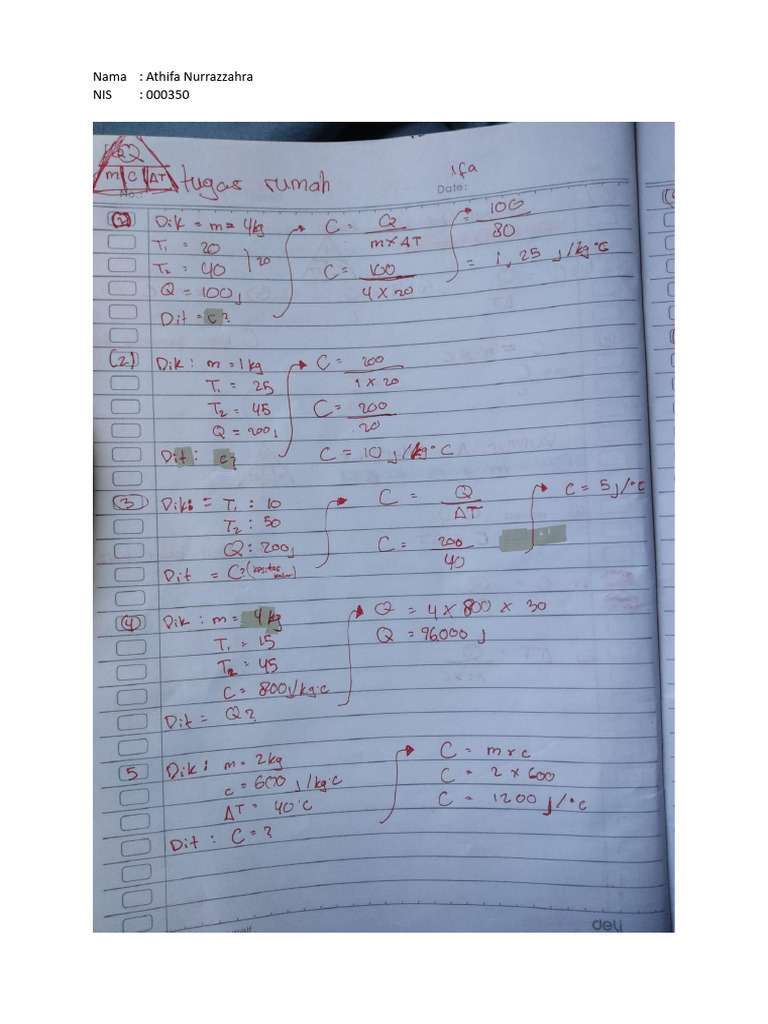 Nama : Athifa Nurrazzahra
NIS : 000350
Q
m C ΔT
No.:
tugas rumah
Ifa
Date:
(1) Dik = m = 4kg
T1 = 20
T2 = 40
20
Q = 100 J
Dit = c?
C = Q / m x ΔT
C = 100 / 4 x 20
= 100 / 80
= 1,25 J/kg°C
(2) Dik : m = 1kg
T1 = 25
T2 = 45
Q = 200 J
Dit : c?
C = 200 / 1 x 20
C = 200 / 20
C = 10 J/kg°C
(3) Dik: = T1 : 10
T2 : 50
Q : 200 J
Dit = C? (kapasitas kalor)
C = Q / ΔT
C = 200 / 40
C = 5 J/°C
(4) Dik : m = 4 kg
T1 = 15
T2 = 45
C = 800 J/kg°C
Dit = Q?
Q = 4 x 800 x 30
Q = 96000 J
5 Dik : m = 2kg
c = 600 J/kg°C
ΔT = 40°C
Dit : C = ?
C = m x c
C = 2 x 600
C = 1200 J/°C
deli